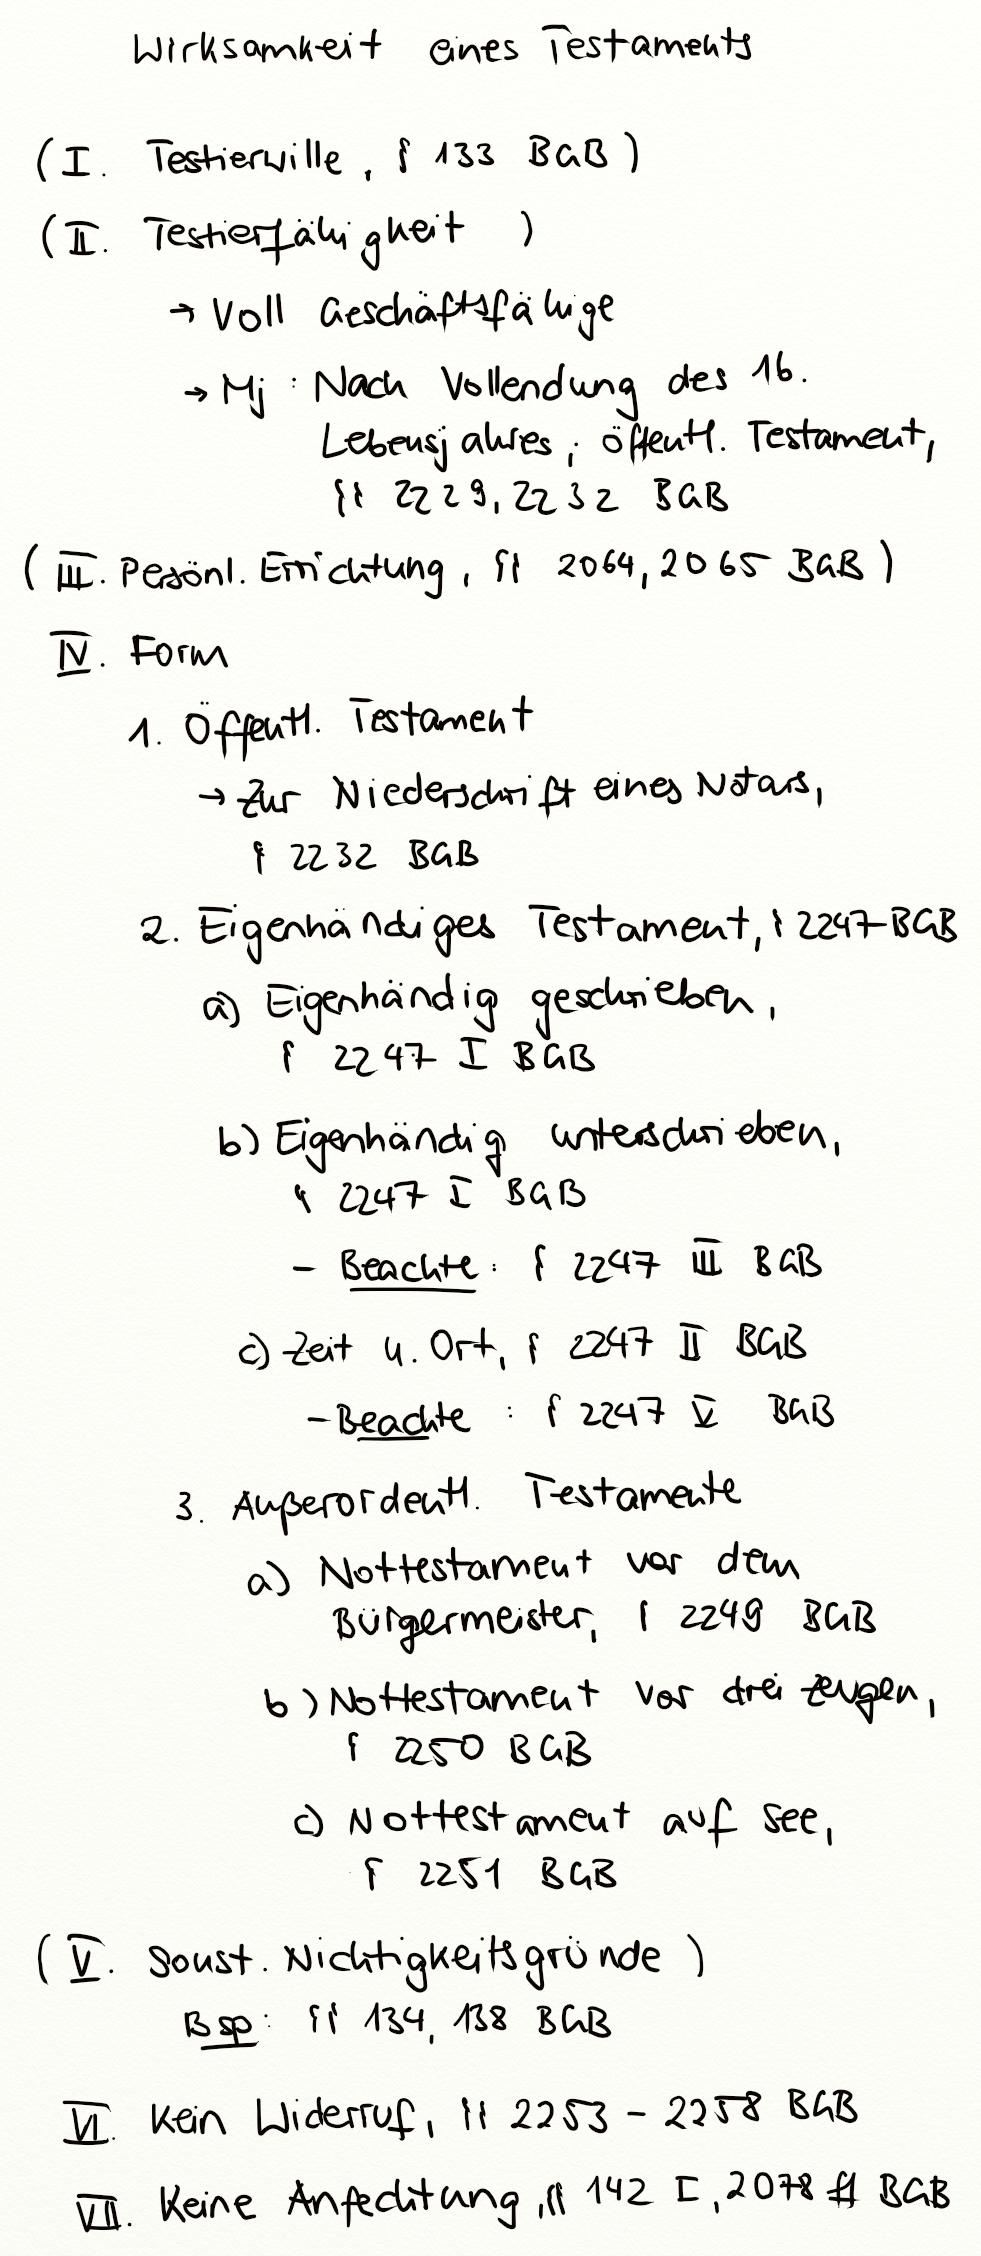 Wirksamkeit eines Testaments
(I. Testierwille, § 133 BGB)
(II. Testierfähigkeit )
→ Voll Geschäftsfähige
→ Mj : Nach Vollendung des 16.
Lebensjahres ; öffentl. Testament,
§§ 2229, 2232 BGB
(III. Persönl. Errichtung, §§ 2064, 2065 BGB)
IV. Form
1. Öffentl. Testament
→ Zur Niederschrift eines Notars,
§ 2232 BGB
2. Eigenhändiges Testament, § 2247 BGB
a) Eigenhändig geschrieben,
§ 2247 I BGB
b) Eigenhändig unterschrieben,
§ 2247 I BGB
- Beachte : § 2247 III BGB
c) Zeit u. Ort, § 2247 II BGB
- Beachte : § 2247 V BGB
3. Außerordentl. Testamente
a) Nottestament vor dem
Bürgermeister, § 2249 BGB
b) Nottestament vor drei Zeugen,
§ 2250 BGB
c) Nottestament auf See,
§ 2251 BGB
(V. Sonst. Nichtigkeitsgründe )
Bsp: §§ 134, 138 BGB
VI. Kein Widerruf, §§ 2253 - 2258 BGB
VII. Keine Anfechtung, §§ 142 I, 2078 ff BGB